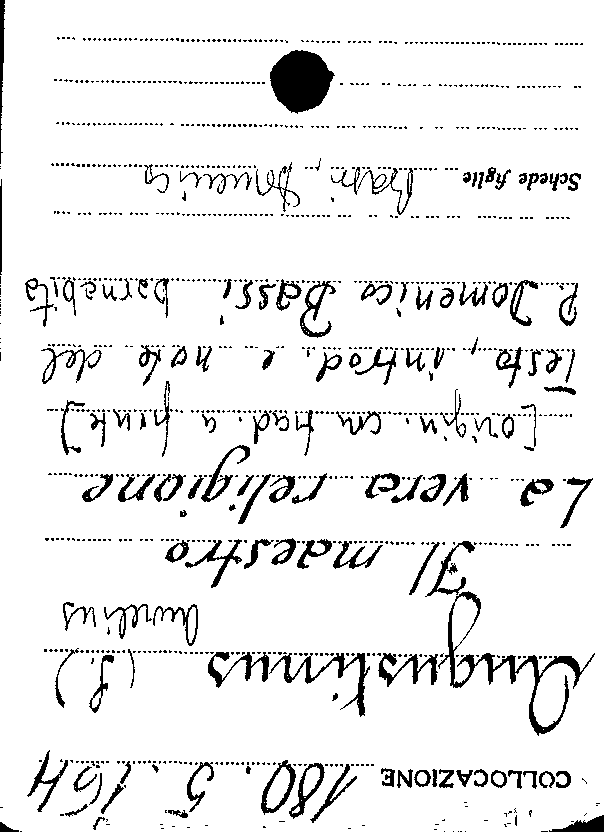 COLLOCAZIONE 180.5.164
Augustinus (S.)
Aurelius
Il maestro
La vera religione
[origin. con trad. a fronte]
Testo, introd. e note del
P. Domenico Bassi barnabita
Schede figlie Bassi, Domenico